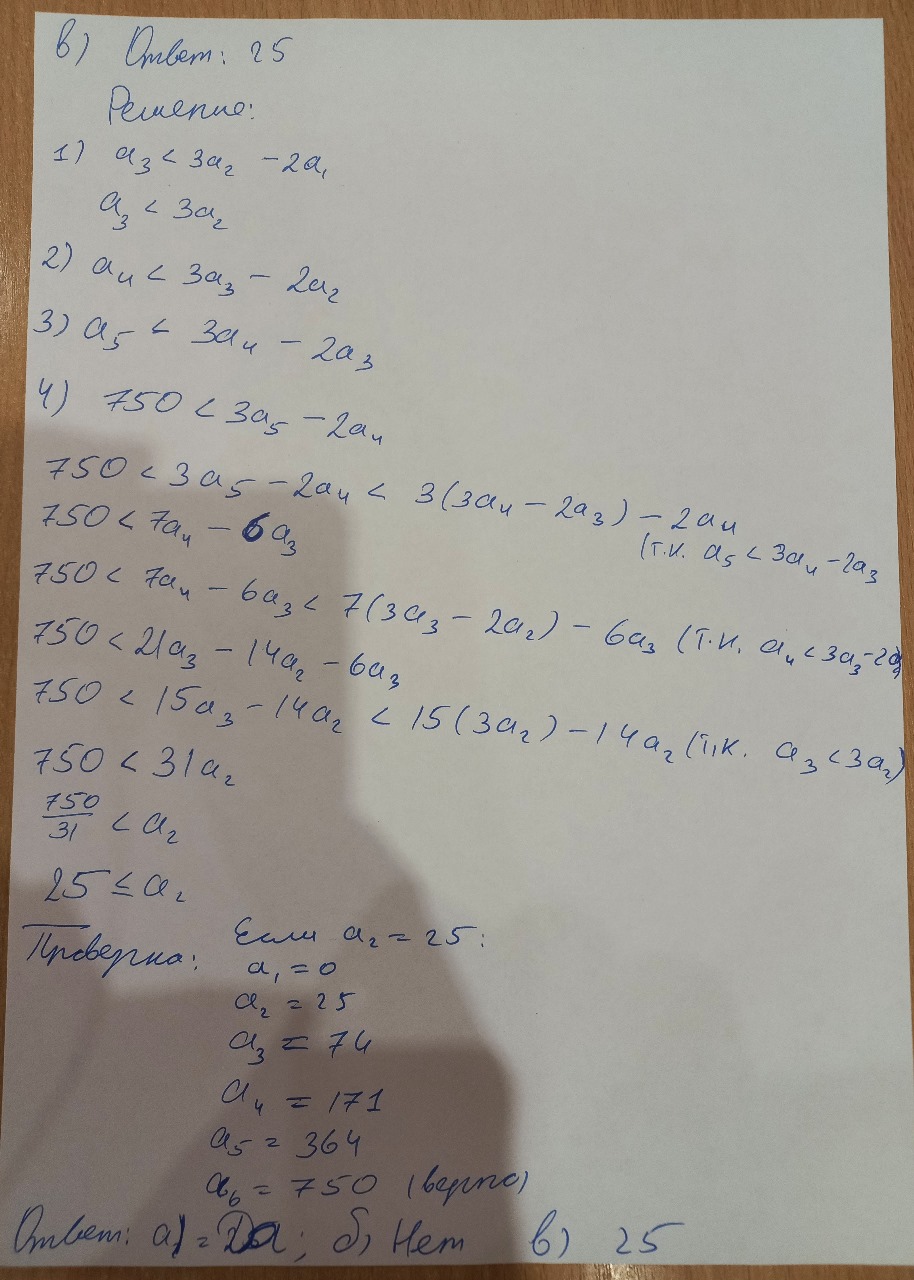 в) Ответ: 25
Решение:
1) a₃ < 3a₂ - 2a₁
a₃ < 3a₂
2) a₄ < 3a₃ - 2a₂
3) a₅ < 3a₄ - 2a₃
4) 750 < 3a₅ - 2a₄
750 < 3a₅ - 2a₄ < 3(3a₄ - 2a₃) - 2a₄
(т.к. a₅ < 3a₄ - 2a₃
750 < 7a₄ - 6a₃
750 < 7a₄ - 6a₃ < 7(3a₃ - 2a₂) - 6a₃ (т.к. a₄ < 3a₃ - 2a₂)
750 < 21a₃ - 14a₂ - 6a₃
750 < 15a₃ - 14a₂ < 15(3a₂) - 14a₂ (т.к. a₃ < 3a₂)
750 < 31a₂
750/31 < a₂
25 ≤ a₂
Проверка: Если a₂ = 25:
a₁ = 0
a₂ = 25
a₃ = 74
a₄ = 171
a₅ = 364
a₆ = 750 (верно)
Ответ: а) = Да; б) Нет в) 25